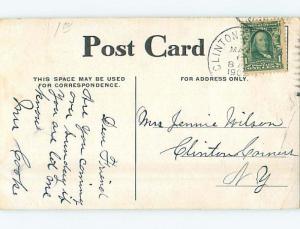 Post Card
THIS SPACE MAY BE USED
FOR CORRESPONDENCE.
FOR ADDRESS ONLY.
CLINTON
8
Dear Friend
Are you coming
over Sunday if
you are let me
know
Mrs Jennie Wilson
Clinton Corners
N Y